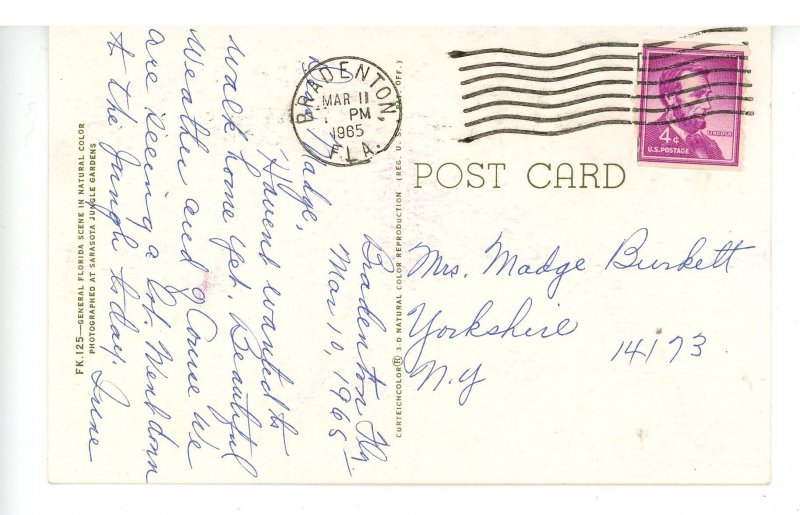 Bradenton Fla.
Mar 10, 1965
Dear Madge,
Havent wanted to
walk home yet. Beautiful
weather and of course we
are seeing a lot. Went down
to the Jungle today.
June
FK.125—GENERAL FLORIDA SCENE IN NATURAL COLOR
PHOTOGRAPHED AT SARASOTA JUNGLE GARDENS
CURTEICHCOLOR® 3-D NATURAL COLOR REPRODUCTION (REG. U.S. OFF.)
BRADENTON,
MAR 11
PM
1965
FLA.
4¢
LINCOLN
U.S. POSTAGE
POST CARD
Mrs. Madge Burkett
Yorkshire
14173
N.Y